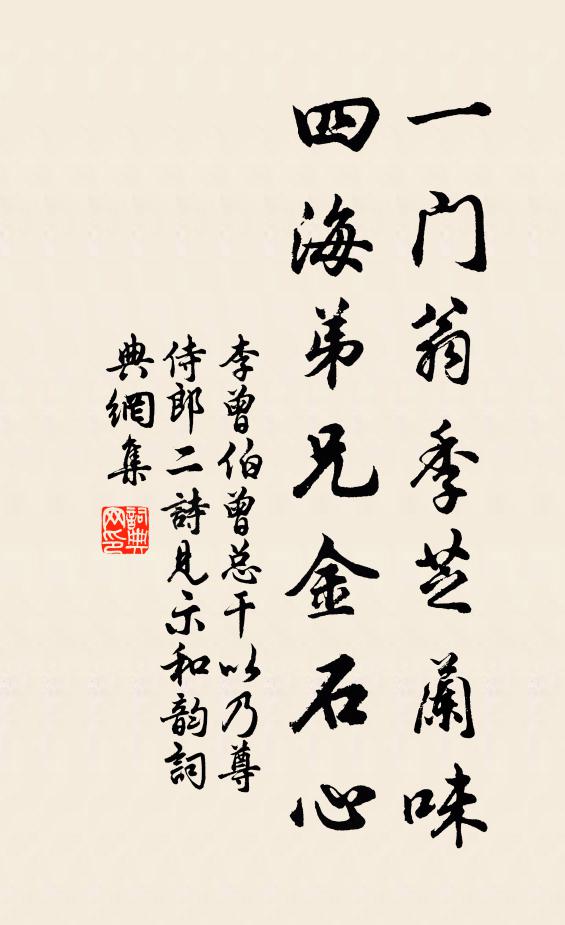 一门翁季芝蘭味
四海弟兄金石心
李曾伯曾总干以乃尊
侍郎二詩見示和韵詞
典網集
詞典网印